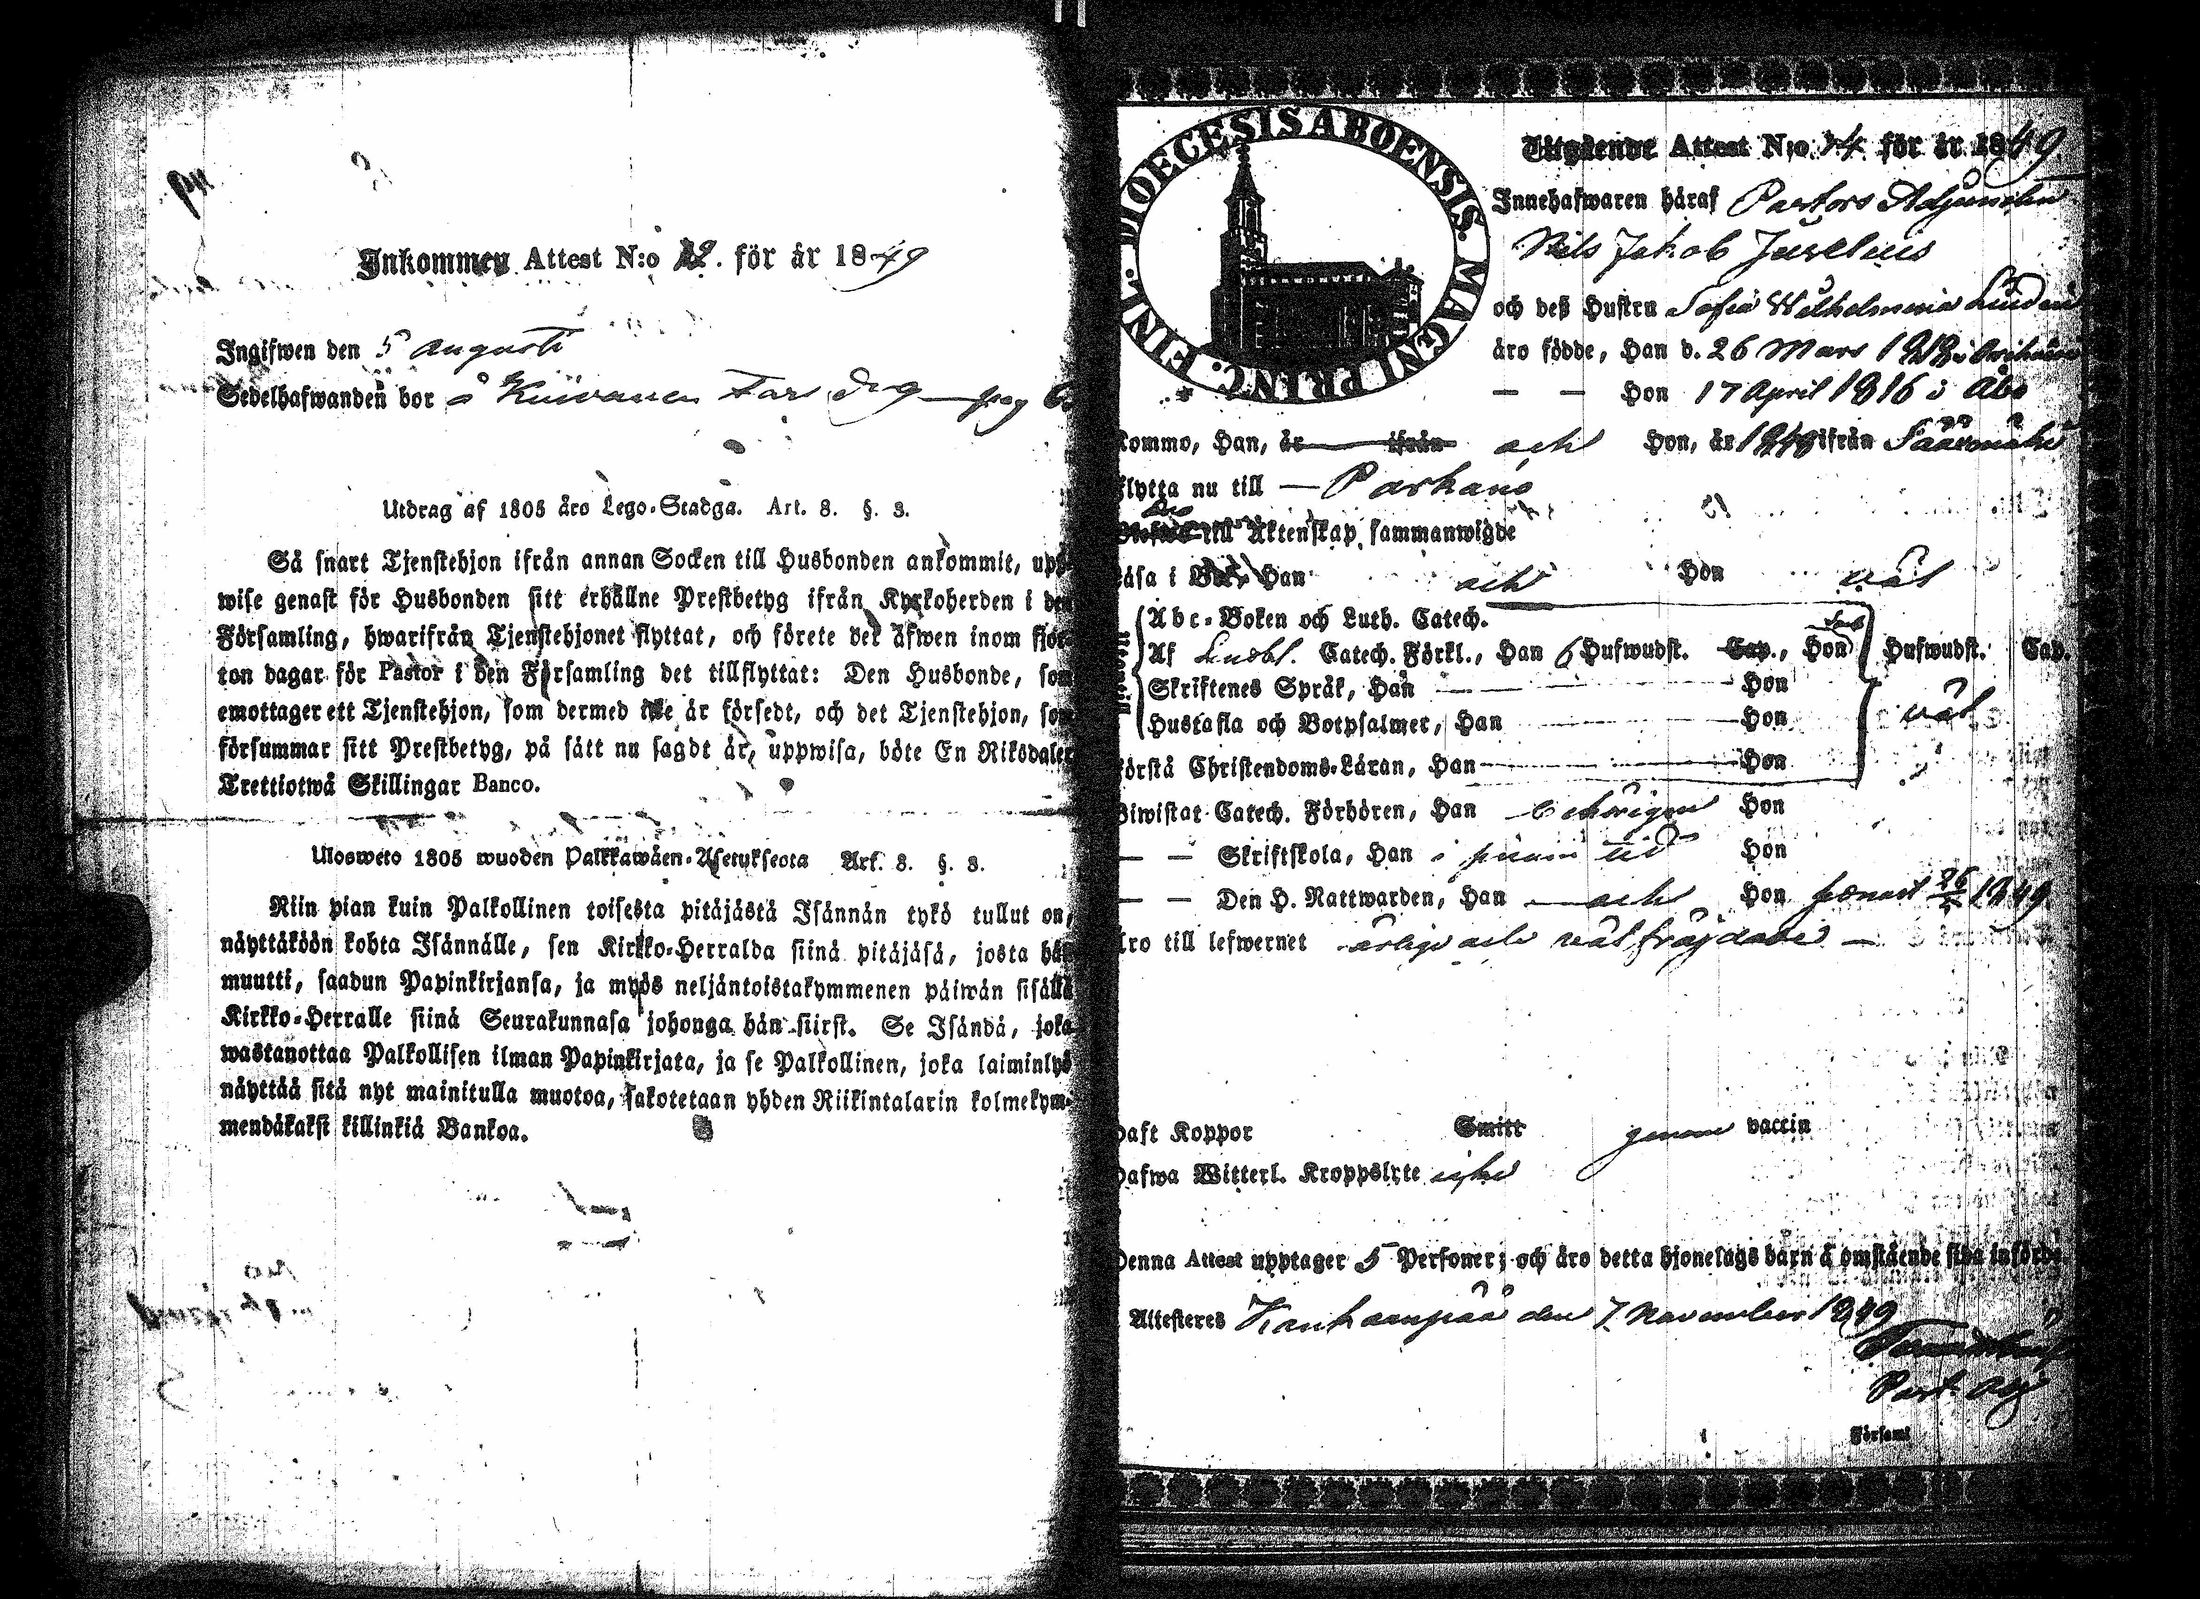 Inkommen Attest N:o 12. för år 1849
Ingifwen den 5 Augusti
Sedelhafwanden bor å
Utdrag af 1805 års Lego-Stadga. Art. 8. §. 3.
Så snart Tjenstehjon ifrån annan Socken till Husbonden ankommit, upp-
wise genast för Husbonden sitt erhållne Prestbetyg ifrån Kyrkoherden i den
Församling, hwarifrån Tjenstehjonet flyttat, och förete det äfwen inom fjor-
ton dagar för Pastor i den Församling det tillflyttat: Den Husbonde, som
emottager ett Tjenstehjon, som dermed icke är försedt, och det Tjenstehjon, som
försummar sitt Prestbetyg, på sätt nu sagdt är, uppwisa, böte En Riksdaler
Trettiotwå Skillingar Banco.
Ulosweto 1805 wuoden Palkkawäen-Asetuksesta Art. 8. §. 3.
Niin pian kuin Palkollinen toisesta pitäjästä Isännän tykö tullut on,
näyttäköön kohta Isännälle, sen Kirkko-Herralda siinä pitäjäsä, josta hän
muutti, saadun Papinkirjansa, ja myös neljäntoistakymmenen päiwän sisällä
Kirkko-Herralle siinä Seurakunnasa johonga hän siirst. Se Isändä, joka
wastanottaa Palkollisen ilman Papinkirjata, ja se Palkollinen, joka laiminlyö
näyttää sitä nyt mainitulla muotoa, sakotetaan yhden Riikintalarin kolmekym-
mendäkaksi killinkiä Bankoa.
DIOECESIS ABOENSIS. MAGNI PRINC. FINL.
Utgående Attest N:o 14 för år 1849
Innehafwaren häraf Pastors Adjuncten
Nils Jakob Juselius
och deß Hustru Sofia Wilhelmina Lindén
äro födde, Han d. 26 Mars 1818 i
— — Hon 17 April 1816 i Åbo
Kommo, Han, år ifrån och Hon, år 1848 ifrån Säärmäki
flytta nu till — Parkano
till Äktenskap sammanwigde
Läsa i Bok, Han och Hon väl
Abc-Boken och Luth. Catech.
Af Lindbl. Catech. Förkl., Han 6 Hufwudst. Cap., Hon Hufwudst. Cap.
Skriftenes Språk, Han — Hon
Hustafla och Botpsalmer, Han — Hon väl
förstå Christendoms-Läran, Han — Hon
Biwistat Catech. Förhören, Han behörigen Hon
— — Skriftskola, Han i sinom tid Hon
— — Den H. Nattwarden, Han och Hon senast 1849
äro till lefwernet ärliga och väl frägdade —
haft Koppor Smitt genom vaccin
hafwa Witterl. Kroppslyte icke
Denna Attest upptager 5 Personer; och äro detta hjonelags barn å omstående sida införde
Attesteres Kankaanpää den 7 November 1849
Past. adj
Församl